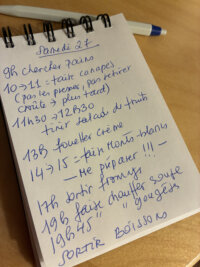 Samedi 27
9h chercher pains
10 → 11 = faire canapés
(pas les presser, pas retirer
croûte → plus tard)
11h30 → 12h30
finir salade de fruits
13h fouetter crème
14 → 15 = faire Monts-blancs
— Me préparer !!! —
17h sortir fromage
19h faire chauffer soupe
19h45 " " gougères
SORTIR BOISSONS